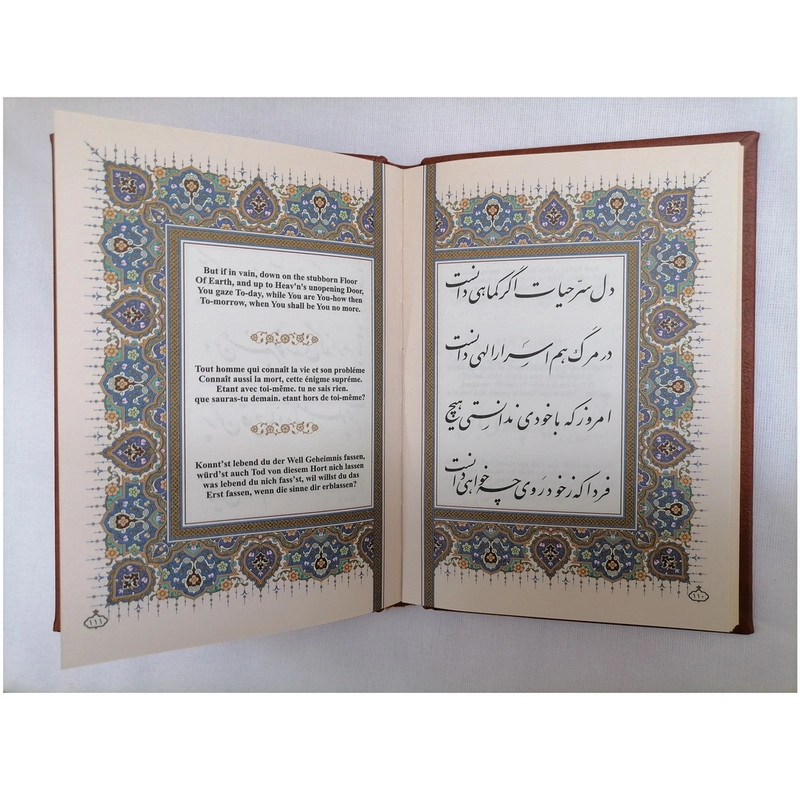 But if in vain, down on the stubborn Floor
Of Earth, and up to Heav'n's unopening Door,
You gaze To-day, while You are You-how then
To-morrow, when You shall be You no more.
Tout homme qui connaît la vie et son probléme
Connaît aussi la mort, cette énigme supréme.
Etant avec toi-même. tu ne sais rien.
que sauras-tu demain. etant hors de toi-même?
Konnt'st lebend du der Well Geheimnis fassen,
würd'st auch Tod von diesem Hort nich lassen
was lebend du nich fass'st, wil willst du das
Erst fassen, wenn die sinne dir erblassen?
١١١
دل سرّ حیات اگر کماهی دانست
در مرگ هم اسرار الهی دانست
امروز که با خودی ندانستی هیچ
فردا که ز خود روی چه خواهی دانست
١١٠